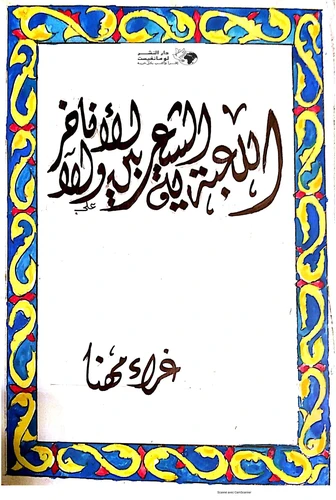 دار النشر
لومانفيست
اللعبة الشعرية بين الأنا والآخر
غراء مهنا